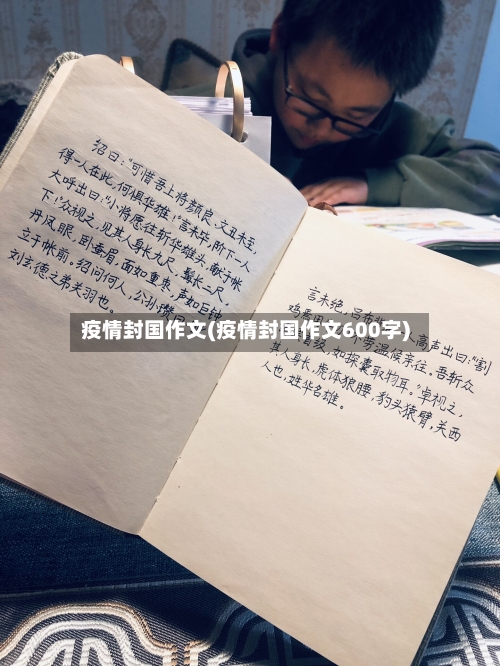 绍曰:“可惜吾上将颜良、文丑未至,
得一人在此,何惧华雄!”言未毕,阶下一人
大呼出曰:“小将愿往斩华雄头,献于帐
下!”众视之,见其人身长九尺,髯长二尺,
丹凤眼,卧蚕眉,面如重枣,声如巨钟,
立于帐前。绍问何人,公孙瓒曰
刘玄德之弟关羽也。
疫情封国作文(疫情封国作文600字)
言未绝,吕布 人高声出曰:“割
鸡焉用 不劳温侯亲往。吾斩众
级,如探囊取物耳。”卓视之,
其人身长,虎体狼腰,豹头猿臂,关西
人也,姓华名雄。